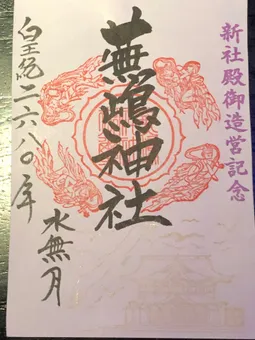 新社殿御造営記念
蕪嶋神社
皇紀二六八〇年
水無月